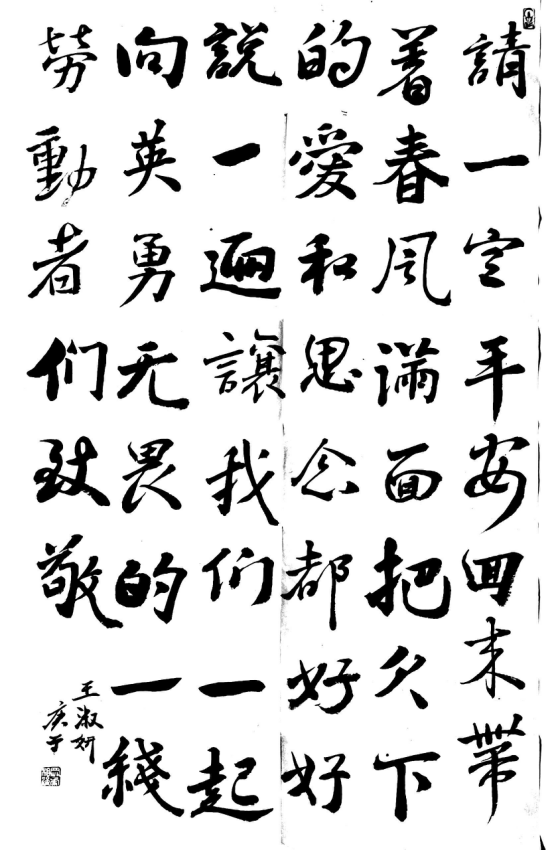 請一定平安回来帶
着春風满面把欠下
的愛和思念都好好
說一遍讓我们一起
向英勇无畏的一綫
勞動者们致敬
王淑妍
庚子